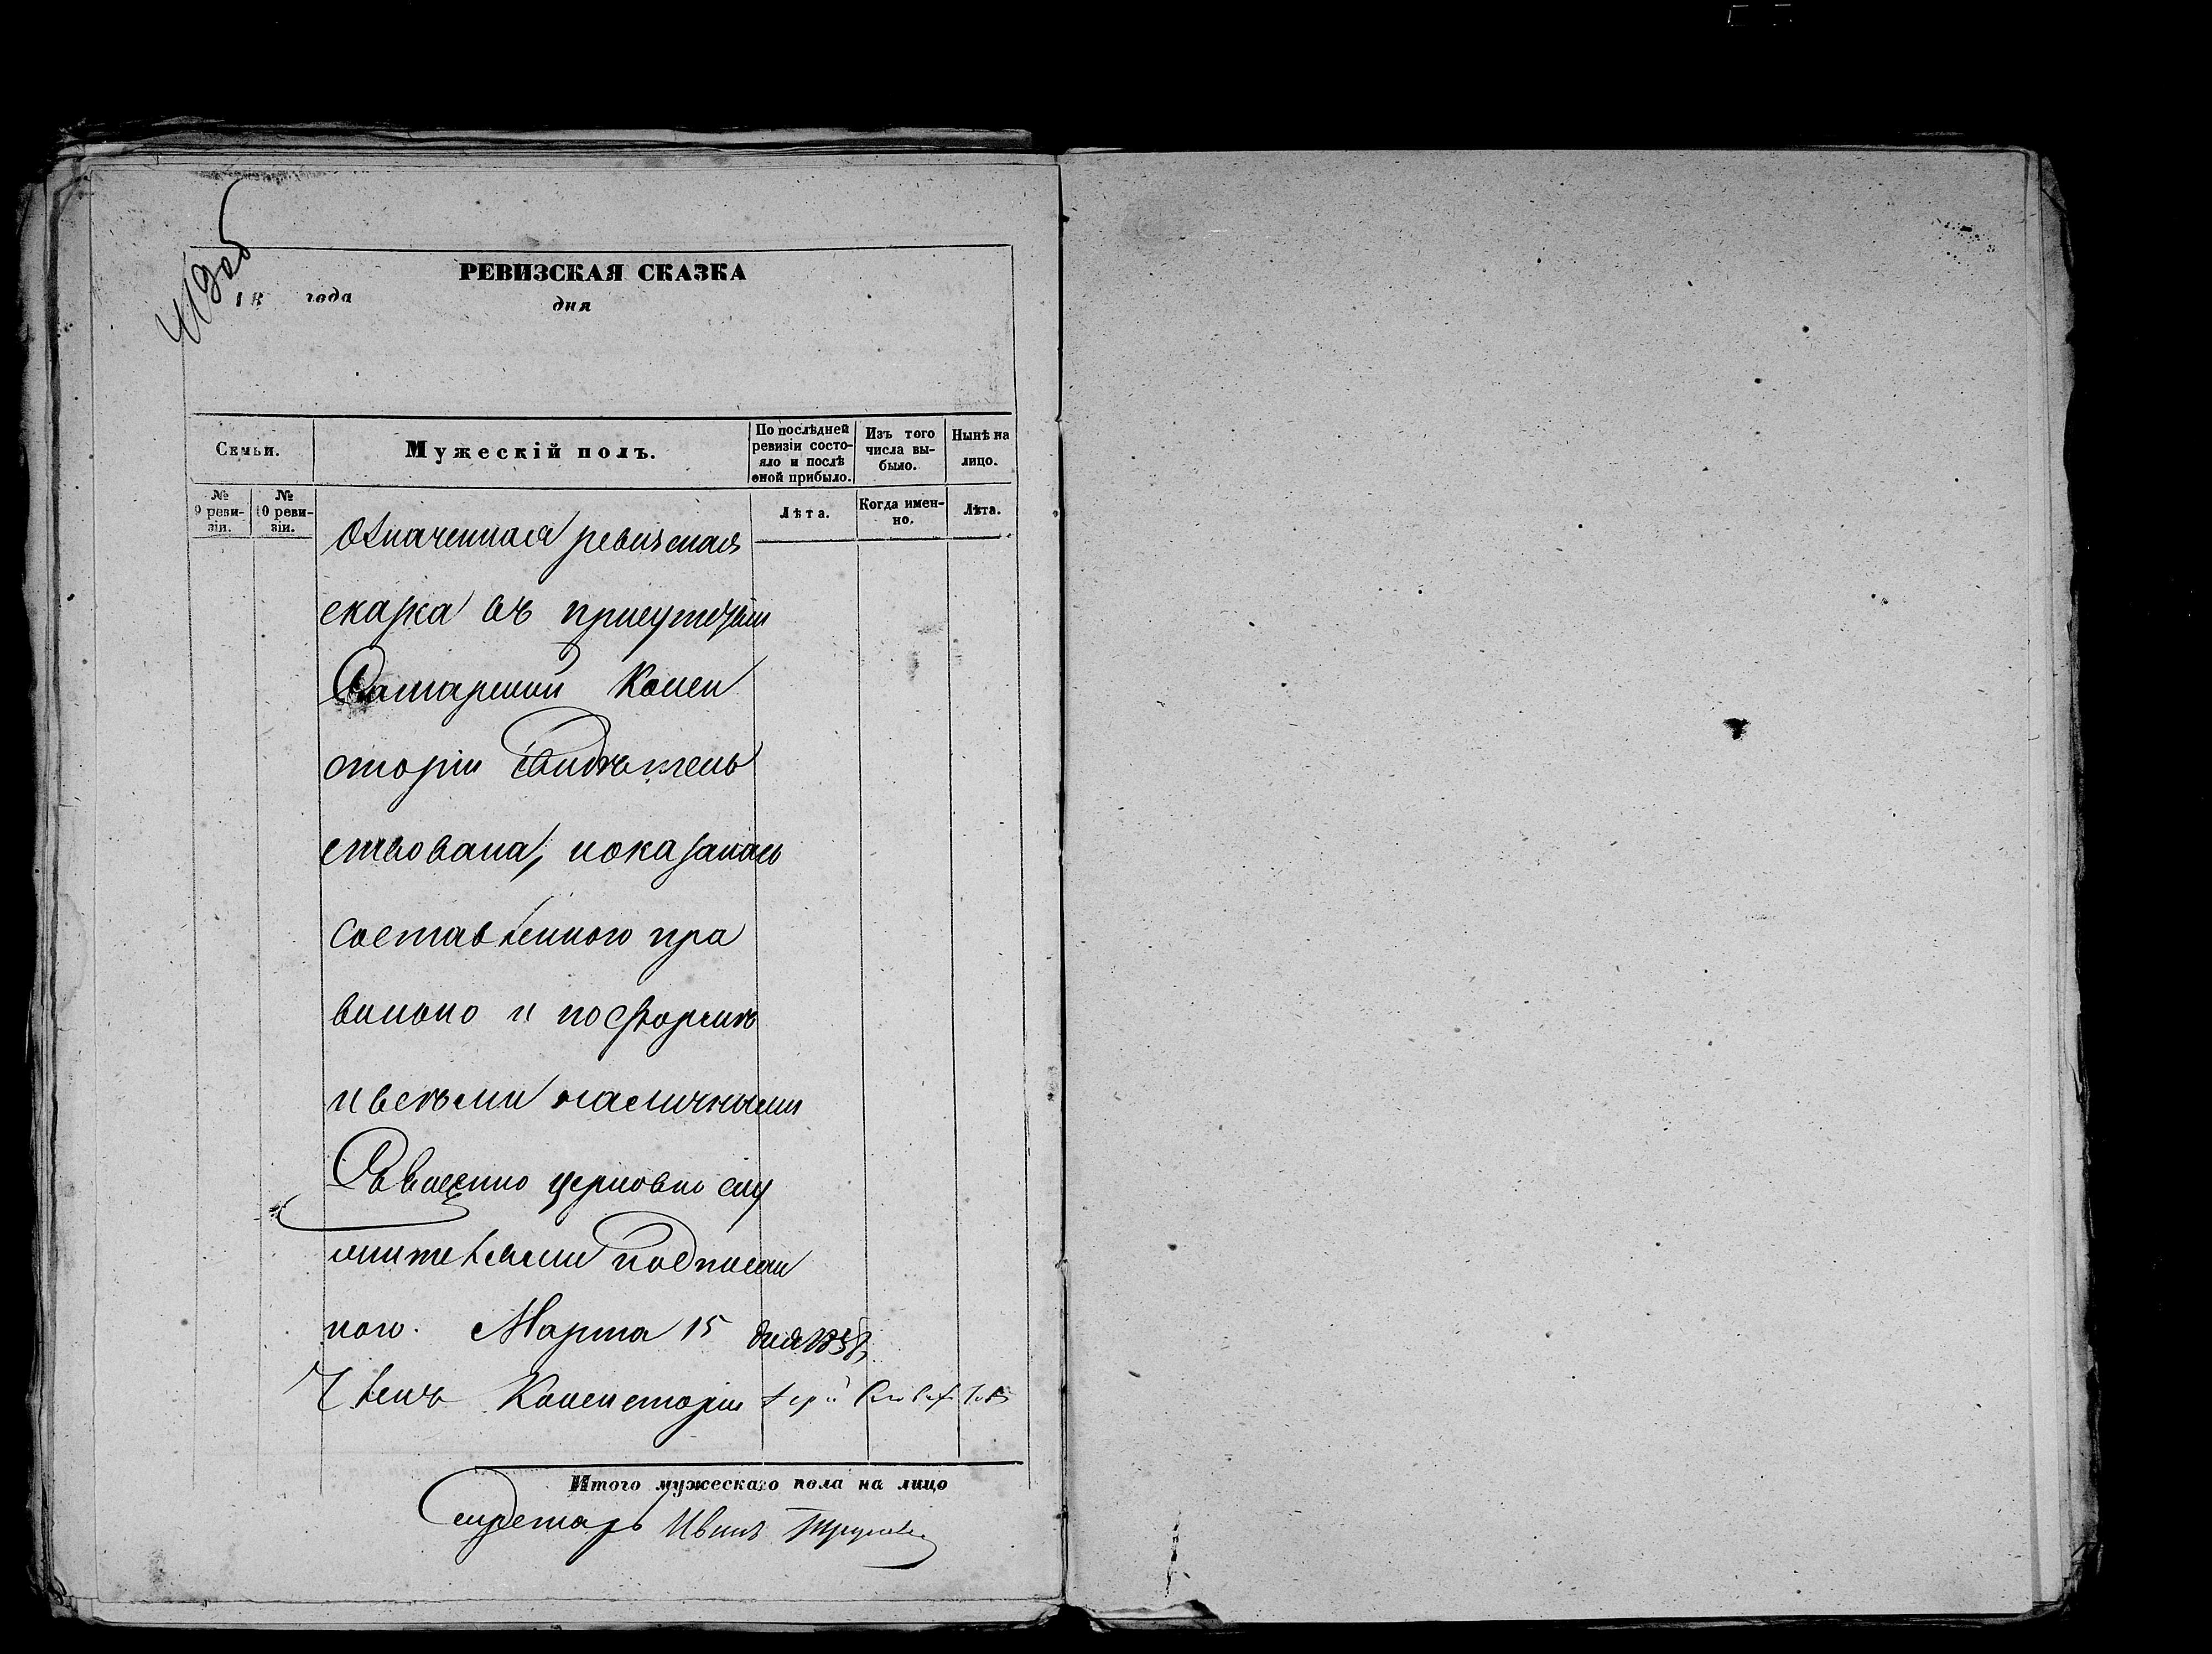 РЕВИЗСКАЯ СКАЗКА
18 года дня
Семьи.
Мужескій полъ.
По послѣдней ревизіи состояло и послѣ оной прибыло.
Изъ того числа выбыло.
Ныне на лицо.
№ 9 ревизіи.
№ 10 ревизіи.
Лѣта.
Когда именно.
Лѣта.
Означенная ревизская
сказка въ присутствіи
Самарской Конси
сторіи свидѣтель
ствована, показалась
составленного пра
вильно и по формѣ
и всѣми наличными
Священно церковно слу
жителями подписан
ною. Марта 15 дня 1858
Членъ Консисторіи
Итого мужескаго пола на лицо
Секретарь Иванъ